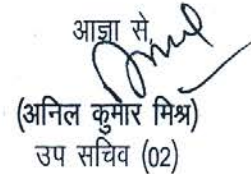 आज्ञा से,
(अनिल कुमार मिश्र)
उप सचिव (02)